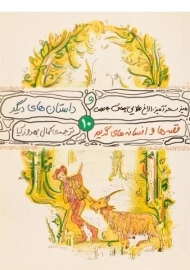 میز سحرآمیز، الاغ طلایی، چماق
و
داستان‌های دیگر
۱۰
قصه‌ها و افسانه‌های گریم
ترجمه‌ی کمال بهروزکیا